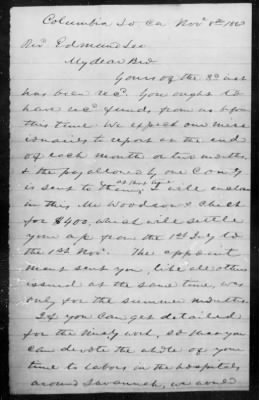 Columbia So Ca Nov 8th 186
Rev. Edmund Lee
My dear Bro
Yours of the 3d inst
has been recd. You ought to
have recd funds from us before
this time. We expect our miss
ionaries to report at the end
of each month or two months,
& the pay allowed by our Comtee
is sent to them. I will enclose
in this Mr Woodrow's Check
for $400, which will settle
your a/c from the 1st July to
the 1st Nov. The appoint
ment sent you, like all others
issued at the same time, was
only for the summer months.
If you can get detailed
for the work, so that you
can devote the whole of your
time to labors in the hospitals
around Savannah, we would